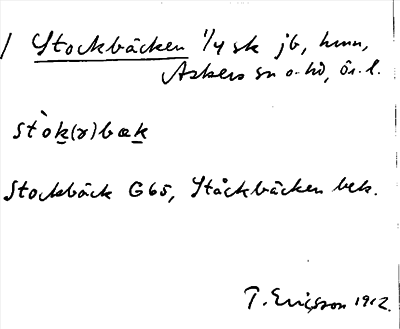 / Stockbäcken 1/4 sk jb, hmn,
Askers sn o. hd, Ör. l.
stòk(r)bæk
Stockbäck G65, Ståckbäcken bek.
T. Ericsson 1912.